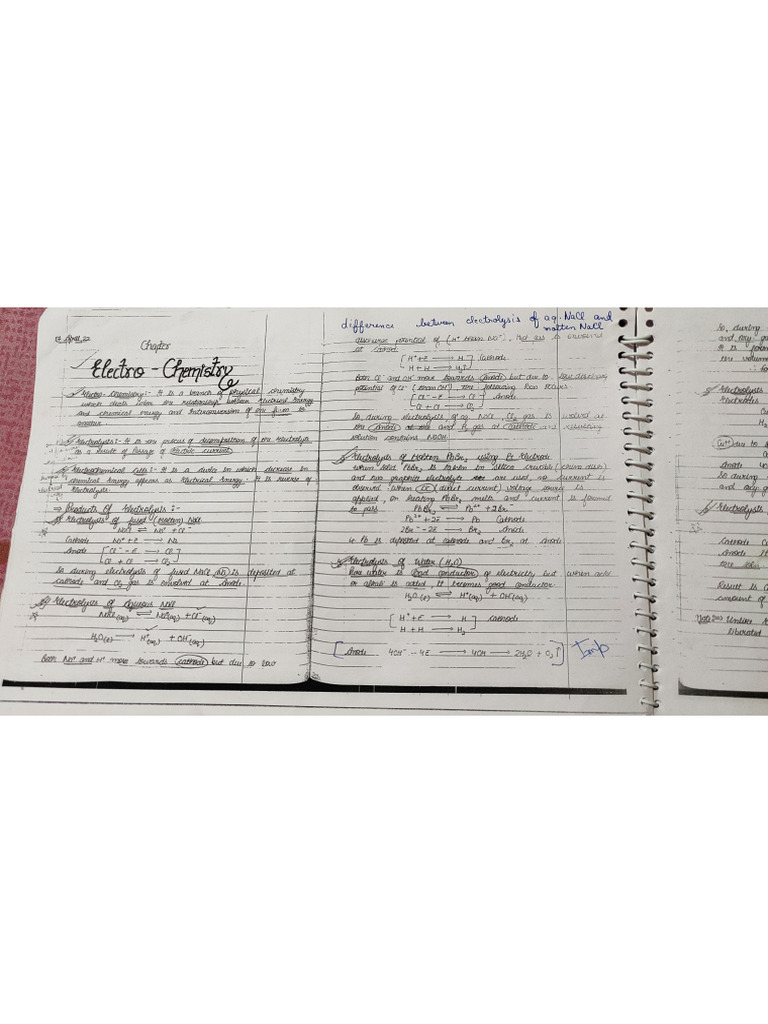 Chapter
Electro-Chemistry
Electro-Chemistry:- It is a branch of physical chemistry
which deals with the relationship between electrical Energy
and chemical energy and Interconversion of one form to
another.
Electrolysis:- It is the process of decomposition of the electrolyte
as a result of Passage of electric current.
Electrochemical Cell:- It is a device in which decrease in
chemical energy appears as electrical Energy. It is reverse of
electrolysis.
⇒ Products of Electrolysis:-
Electrolysis of fused (Molten) NaCl
NaCl ⇌ Na⁺ + Cl⁻
Cathode Na⁺ + e ⟶ Na
Anode [ Cl⁻ - e ⟶ Cl
Cl + Cl ⟶ Cl₂ ]
So during electrolysis of fused NaCl, Na is deposited at
cathode and Cl₂ gas is evolved at Anode.
Electrolysis of Aqueous NaCl
NaCl(aq) ⟶ Na⁺(aq) + Cl⁻
H₂O(l) ⟶ H⁺(aq) + OH⁻(aq)
Both Na⁺ and H⁺ move towards cathode but due to low
difference between electrolysis of aq. NaCl and
molten NaCl
discharge potential of (H⁺ than Na⁺), H₂ gas is
at cathode
[ H⁺ + e ⟶ H
H + H ⟶ H₂↑ ] Cathode
Both Cl⁻ and OH⁻ move towards Anode but due to low discharge
potential of Cl⁻ (than OH⁻), the following Rxn occurs
[ Cl⁻ - e ⟶ Cl
Cl + Cl ⟶ Cl₂ ] Anode
So, during electrolysis of aq. NaCl, Cl₂ gas is evolved at
the Anode and H₂ gas at cathode and resulting
solution contains NaOH.
Electrolysis of Molten PbBr₂ using Pt Electrode
when solid PbBr₂ is taken in silica crucible (china dish)
and two graphite electrolyte are used, no current is
observed when DC (direct current) voltage source is
applied, on heating PbBr₂ melts and current is found
to pass. PbBr₂ ⇌ Pb²⁺ + 2Br⁻
Pb²⁺ + 2e ⟶ Pb Cathode
2Br⁻ - 2e ⟶ Br₂ Anode
i.e. Pb is deposited at cathode and Br₂ at Anode
Electrolysis of Water (H₂O)
Pure water is Bad conductor of electricity but when acid
or alkali is added, it becomes good conductor
H₂O(l) ⇌ H⁺(aq) + OH⁻(aq)
[ H⁺ + e ⟶ H
H + H ⟶ H₂ ] Cathode
[ Anode 4OH⁻ - 4e ⟶ 4OH ⟶ 2H₂O + O₂↑ ] Imp
So, during
Electrolysis
Cu²⁺ due to
Anode
So during
Electrolysis
Cathode
Anode
Result is
amount of
Note ⇒ Unlike
liberated